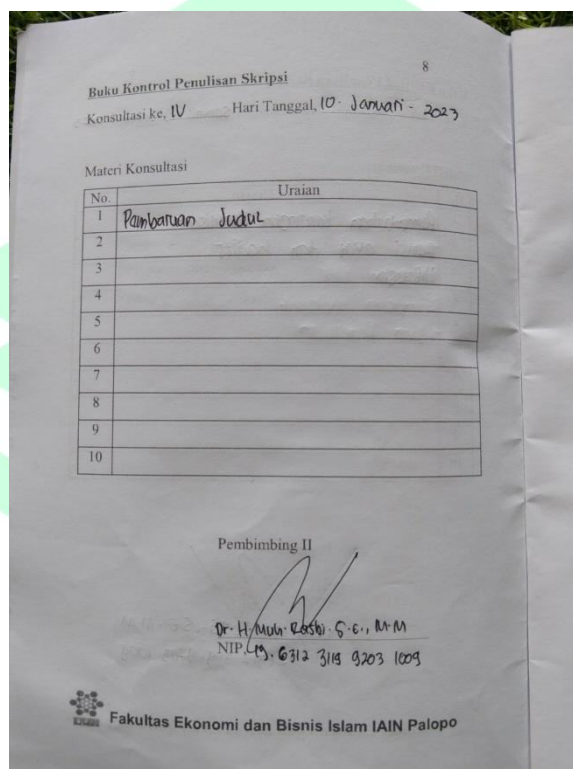 8
Buku Kontrol Penulisan Skripsi
Konsultasi ke, IV Hari Tanggal, 10 - Januari - 2023
Materi Konsultasi
No. Uraian
1 Pambaruan Judul
2
3
4
5
6
7
8
9
10
Pembimbing II
Dr. H. Muh. Rasbi. S.E., M.M
NIP. 19. 6312 3119 9203 1009
Fakultas Ekonomi dan Bisnis Islam IAIN Palopo